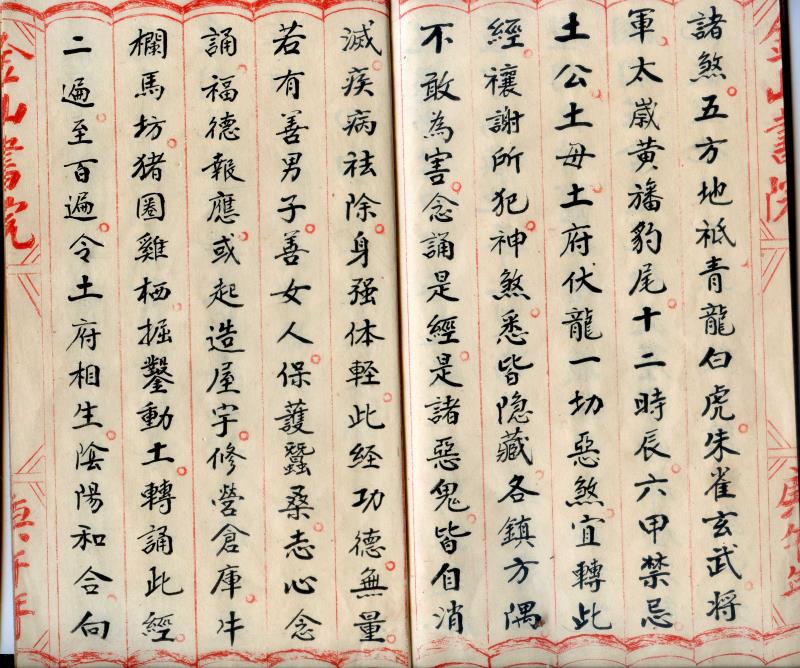 諸煞五方地祇青龍白虎朱雀玄武將
軍太歲黃旛豹尾十二時辰六甲禁忌
土公土母土府伏龍一切惡煞宜轉此
經禳謝所犯神煞悉皆隐藏各鎮方隅
不敢為害念誦是經是諸惡鬼皆自消
滅疾病祛除身强体輕此经功德無量
若有善男子善女人保護蠶桑志心念
誦福德報應或起造屋宇修營倉庫牛
欄馬坊猪圈雞栖掘鑿動土轉誦此經
二遍至百遍令土府相生陰陽和合向
金山書院